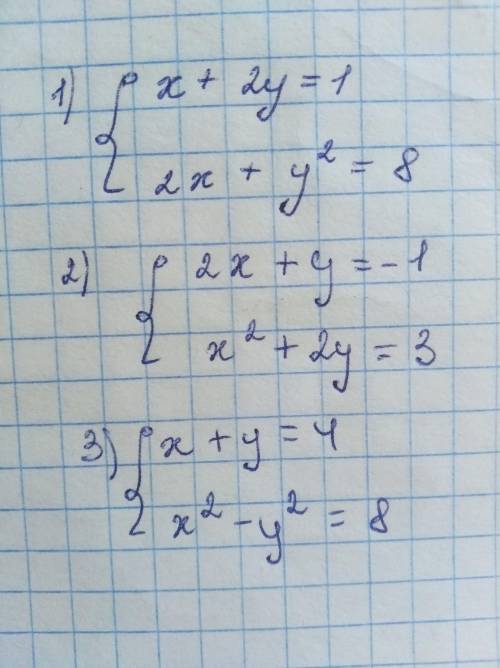 1) { x + 2y = 1
2x + y² = 8
2) { 2x + y = -1
x² + 2y = 3
3) { x + y = 4
x² - y² = 8